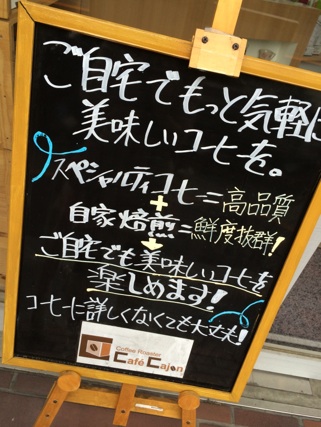 ご自宅でもっと気軽に
美味しいコーヒーを。
スペシャルティコーヒー＝高品質
+
自家焙煎＝鮮度抜群!
ご自宅でも美味しいコーヒーを
楽しめます!
コーヒーに詳しくなくても大丈夫!
Coffee Roaster
Café Cajon